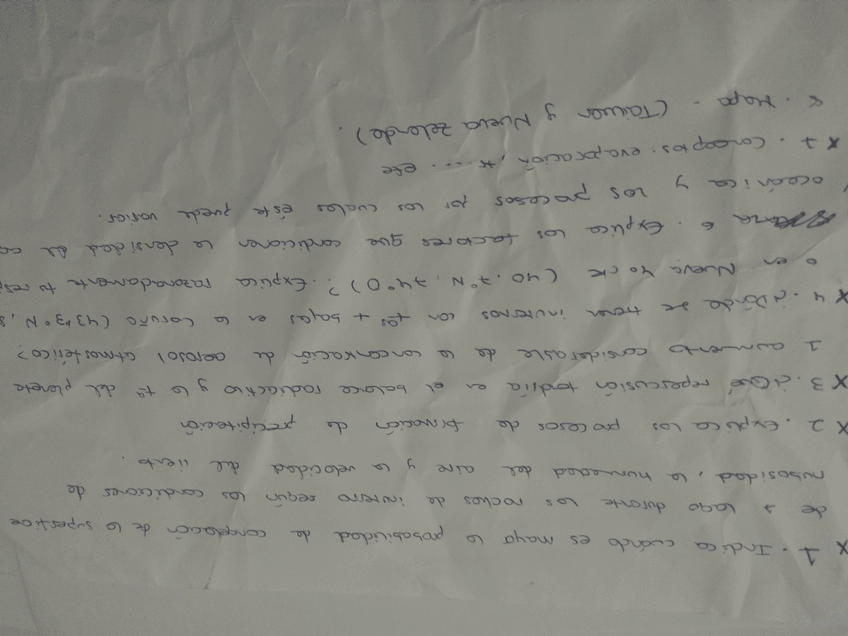 X 1. Indica cuándo es mayor la probabilidad de congelación de la superficie
de 1 lago durante las noches de invierno según las condiciones de
nubosidad, la humedad del aire y la velocidad del viento.
X 2. Explica los procesos de formación de precipitación
X 3. ¿Qué repercusión tendría en el balance radiactivo y la tª del planeta
1 aumento considerable de la concentración de aerosol atmosférico?
X 4. ¿Dónde se tienen inviernos con tªs + bajas en la Coruña (43'3°N, 8
o en Nueva York (40.7°N, 74°O)?. Explica razonadamente tu resp
6. Explica los factores que condicionan la densidad del
oceánica y los procesos por los cuales éste puede variar.
X 7. Conceptos: evaporación, .... etc
8. Mapa. (Taiwan y Nueva Zelanda).